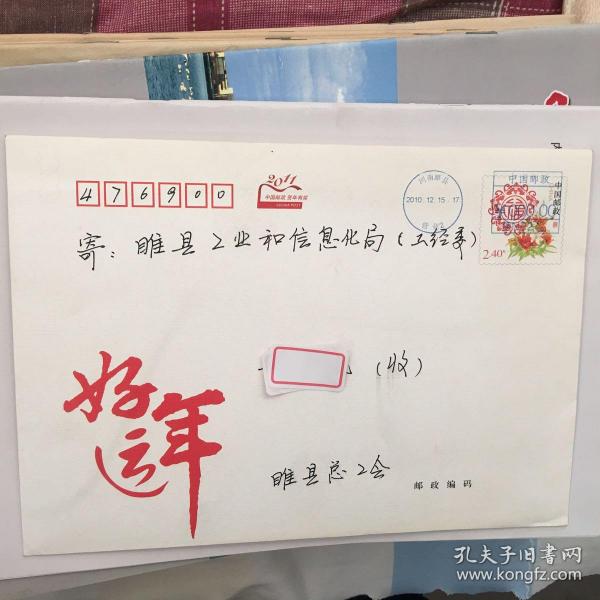 476900
2011
中国邮政 贺年有奖
河南睢县
2010.12.15.17
中国邮政
中国邮政
2.40元
寄：睢县工业和信息化局（工经委）
（收）
好运年
睢县总工会
邮政编码
孔夫子旧书网
www.kongfz.com